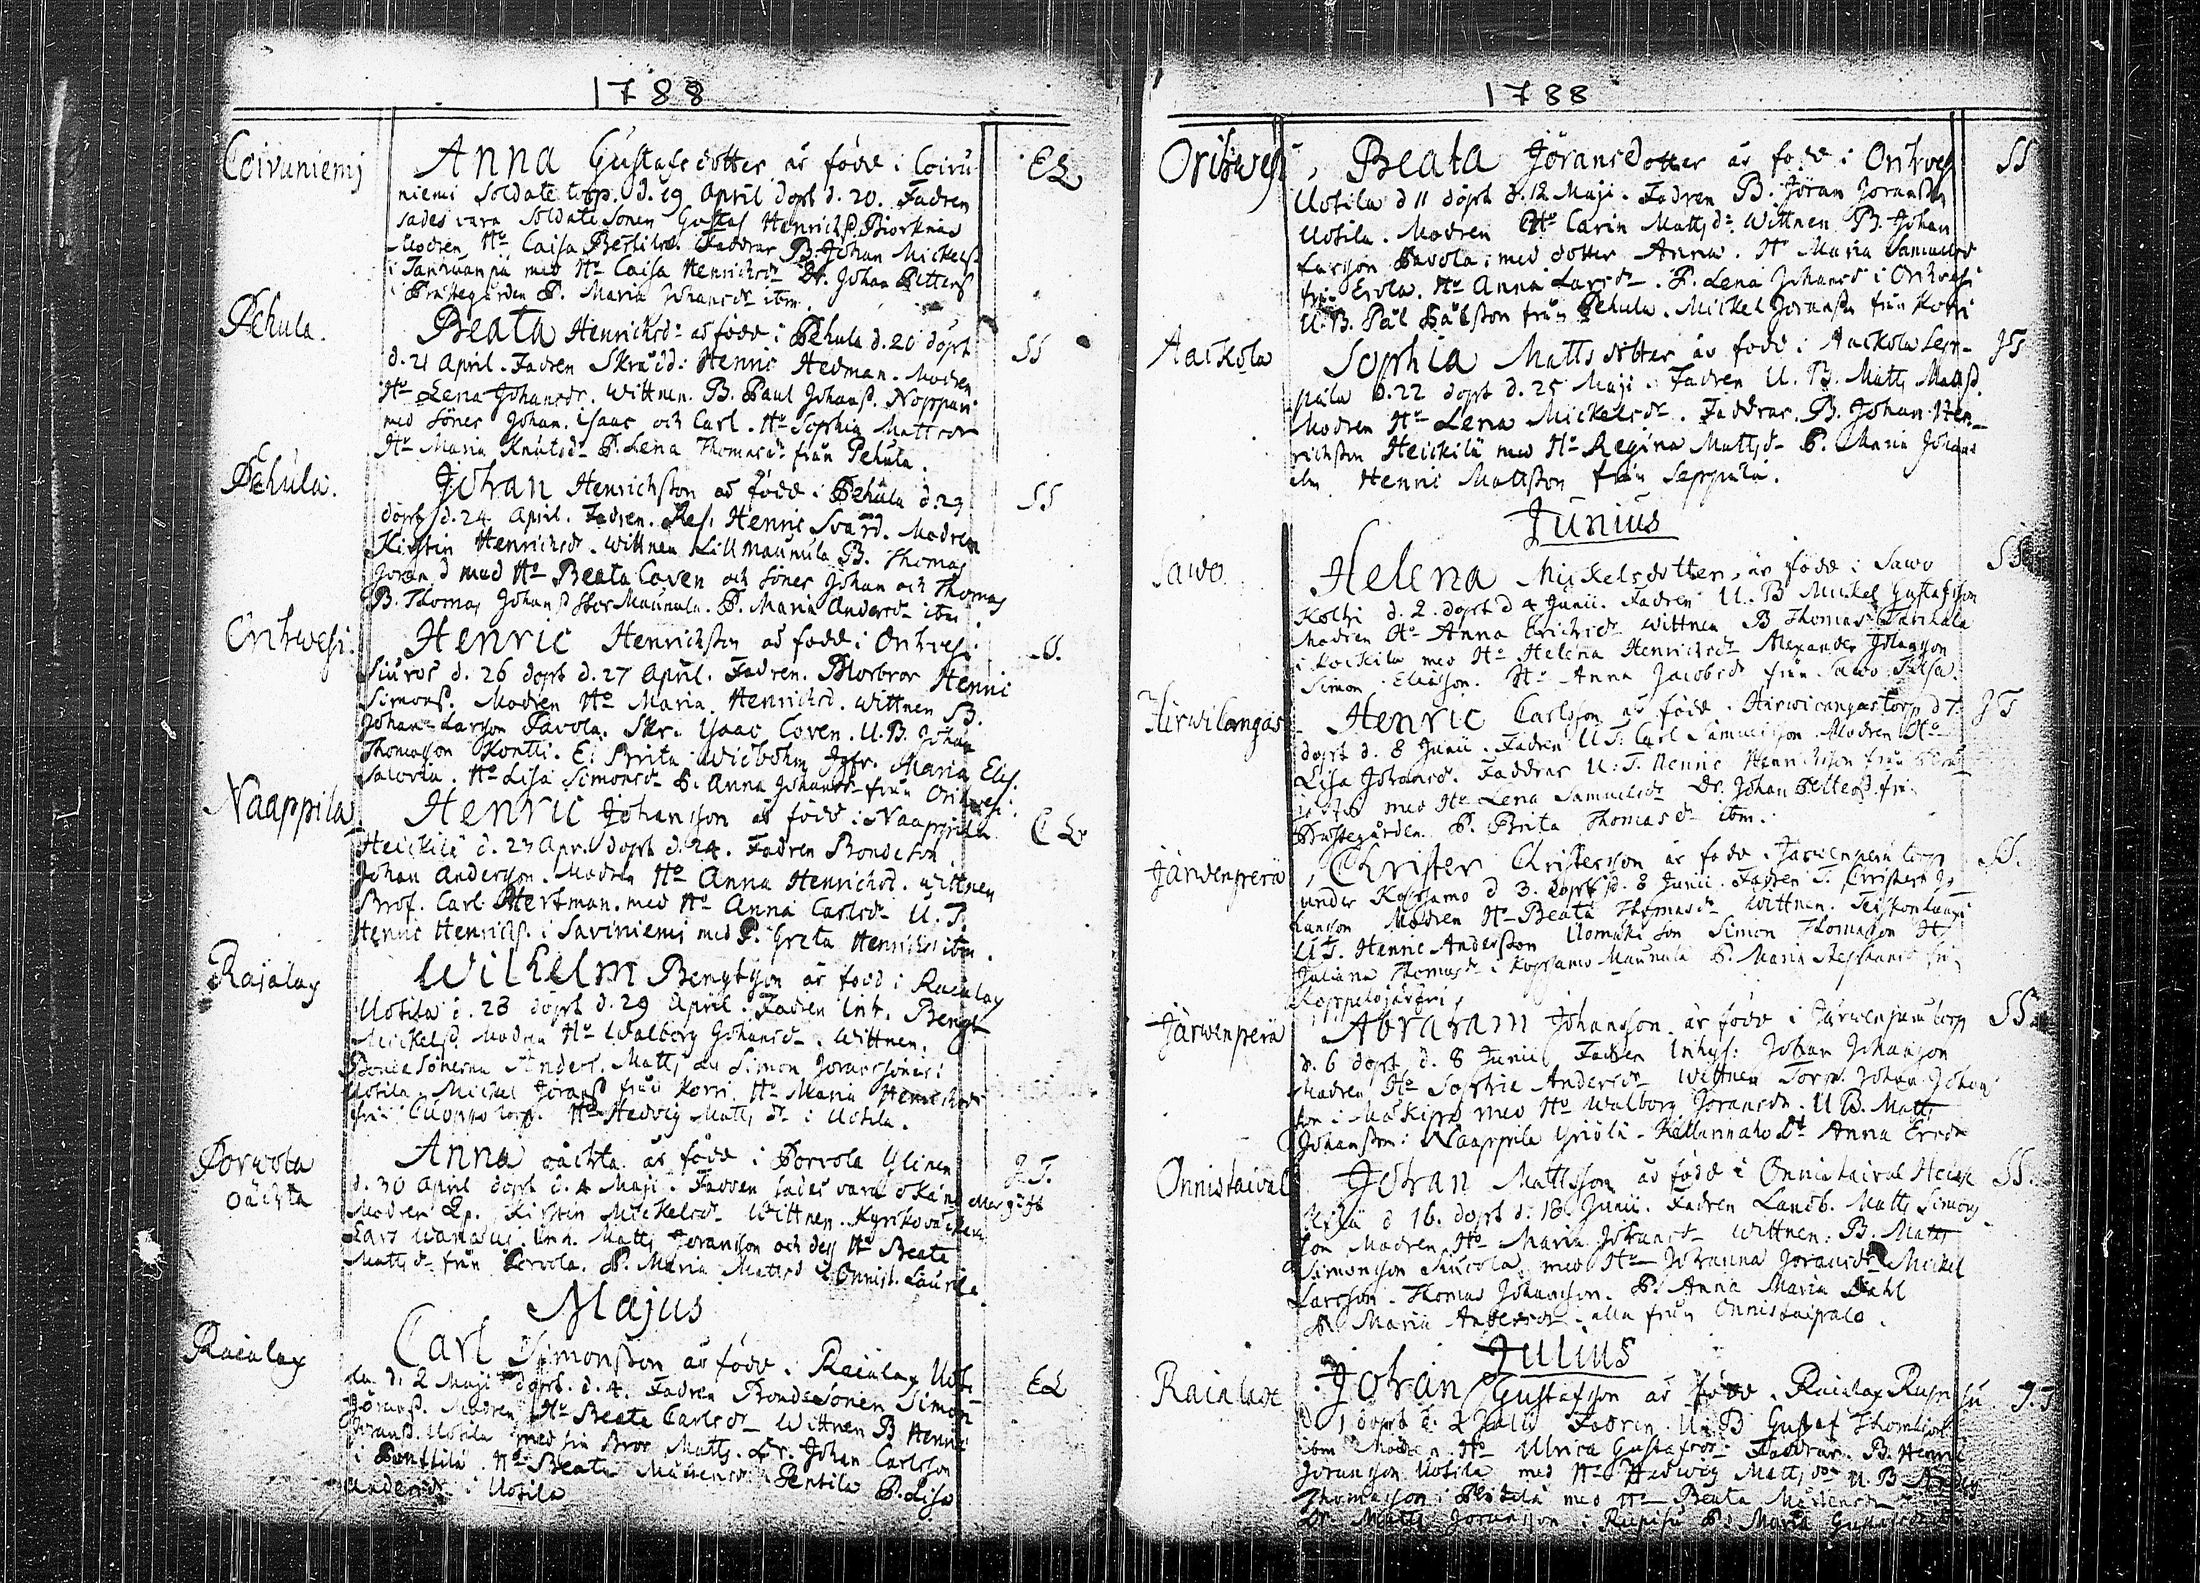 1788
Coivuniemi
Anna Gustafsdotter är född i Coivu-
niemi Soldate torp. d. 19 April döpt d. 20. Fadren
sades vara Soldate Sonen Gustaf Henrichss Biorknäs
Modren Ho Caisa Bertilsd. Faddrar B. Johan Mickels
i med Ho Caisa Henrichsdr Dr. Johan Petters
i Prästegården P. Maria Johansdr ibm.
EL
Pehula.
Beata Henricksdr är född i Pehula d. 20 döpt
d. 21 April. Fadren Skrädd: Henric Hedman. Modren
Ho Lena Johansdr. Wittnen. B. Paul Johanss. Noppari
med söner Johan. Isaac och Carl. Ho Sophia Mattsdr
Ho Maria Knutsdr P. Lena Thomasdr från Pehula.
SS
Pehula.
Johan Henrichsson är född i Pehula d. 23
döpt d. 24. April. Fadren. Res: Henric Svärd. Modren
Kirstin Henrichsdr. Wittnen Lill Maunula B. Thomas
Joranss med Ho Beata Coven och söner Johan och Thomas
B. Thomas Johanss Stor Maunula. P. Maria Andersdr ibm
SS
Orihwesi.
Henric Henrichsson är född i Orihvesi
Siuros d. 26 döpt d. 27 April. Fadren. Morbror Henric
Simonss. Modren Ho Maria Henrichsd. Wittnen B.
Johan Larsson Pavola. Skr. Isaac Coven. U.B. Johan
Thomasson Kontti. E. Brita Wicbohm Jgfr. Maria Elis.
Ho Lisa Simonsdr P. Anna Johansdr från Orihwesi.
SS.
Naappila
Henric Johansson är född i Naappila
Heickilä d. 23 April döpt d. 24. Fadren Bondeson
Johan Andersson. Modren Ho Anna Henrichsd. Wittnen
Prof. Carl Hertman. med Ho Anna Carlsdr U. T.
Henric Henrichs. i Saviniemi med P. Greta Henrichsd ibm.
EL
Rajalax
Wilhelm Bengtsson är född i Raialax
Uotila d. 28 döpt d. 29 April. Fadren Inh. Bengt
Mickelss. Modren Ho Walborg Johansdr. Wittnen.
Bonde Sönerna Anders. Matts Simon Joranssöner i
Uotila Mickel Joranss från Korri. Ho Maria Henrichsdr
från torp. Ho Hedvig Matts dr i Uotila.
Porwola
oächta
Anna oächta är född i Porvola Ylinen
d. 30 April döpt d. 4 Maji. Fadren sades vara okänd
Modren Kirstin Mickelsdr Wittnen. Kyrkoväcktaren
Lars Inh. Matts Joransson och dess Ho Beata
Mattsdr från Porvola. P. Maria Mattsd i Onnist. Laurila.
J.T.
Majus
Raialax
Carl Simonsson är född. Raialax Uoti-
la d. 2 Maji döpt. d. 4. Fadren Bondesonen Simon
Jöranss. Modren Ho Beata Carlsdr Wittnen B Henric
Joranss. Uotila med sin Bror Matts. Dr. Johan Carlsson
i Penttilä. Ho Beata Mårtensdr Pentila P. Lisa
Andersdr i Uotila
EL
1788
Orihwesi
Beata Jöransdotter är född i Orihvesi
Uotila d 11 döpt d. 12 Maji. Fadren B. Jöran Joransson
Uotila. Modren Ho Carin Mattsdr. Wittnen B. Johan
Larsson Pavola med dotter Anna. Ho Maria Samuelsd
från Erola. Ho Anna Larsdr. P. Lena Johansd i Orihvesi
U. B. Pål Pålsson från Pehula. Mickel Joransson från Korri
SS
Aackola
Sophia Matts dotter är född i Aackola Sep-
pälä d. 22 döpt d. 25 Maji. Fadren U. B. Matts Matss.
Modren Ho Lena Mickelsdr. Faddrar. B. Johan Hen-
richsson Heickilä med Ho Regina Mattsdr P. Maria Johans
ibm Henric Mattsson från Seppälä.
JT
Junius
Sawo
Helena Mickelsdotter är född i Sawo
Kolhi d. 2. döpt d 4 Junii. Fadren U. B Mickel Gustafsson
Modren Ho Anna Erichsdr Wittnen B Thomas
i Kockila med Ho Helena Henrichsdr Alexander Johansson
Simon Eliasson. Ho Anna Jacobsdr från Sawo
SS
Hirwilangas
Henric Carlsson är född. torp d 7.
döpt d. 8 Junii. Fadren U T. Carl Samuelsson Modren Ho
Lisa Johansd. Faddrar U. T. Henric Henrichsson från
med Ho Lena Samuelsdr Dr. Johan Petterss. från
Prästegården. P. Brita Thomasd ibm.
JT
Järwenperä
Christer Christersson är född. Järwenperä torp
under Kopsamo d 3. döpt d. 8 Junii. Fadren T. Christer Jo-
hansson Modren Ho Beata Thomasdr Wittnen.
U T. Henric Andersson son Simon Thomasson Ho
Juliana Thomasdr i Kopsamo Maunula P. Maria Stephansd från
SS.
Järwenperä
Abraham Johansson är född i Järwenperä torp
d. 6 döpt d. 8 Junii Fadren Inhys: Johan Johansson
Modren Ho Sophia Andersdr Wittnen Torp. Johan Johans
son i med Ho Walborg Joransdr. U B. Matts
Johansson i Naappila Yriölä Anna Ericdr
SS
Onnistaival
Johan Mattsson är född i Onnistaival Heic
kilä d 16. döpt d. 18. Junii. Fadren Landb. Matts Simons
son Modren Ho Maria Johansdr Wittnen. B. Matts
Simonsson med Ho Johanna Joransdr Mickel
Larsson. Thomas Johansson. P. Anna Maria Dahl
P. Maria Andersdr alla från Onnistaipale.
SS.
Julius
Raialax
Johan Gustafsson är född. Raialax
d. 1 döpt d. 2 Julii Fadren U. B Gustaf Thomasson
ibm Modren Ho Ulrica Gustafsdr. Faddrar. B. Henric
Joransson Uotila med Ho Hedwig Mattsdr U. B
Thomasson i med Ho Beata Mårtensdr
Dr. Matts Joransson i P. Maria Gustafsdr
J.T